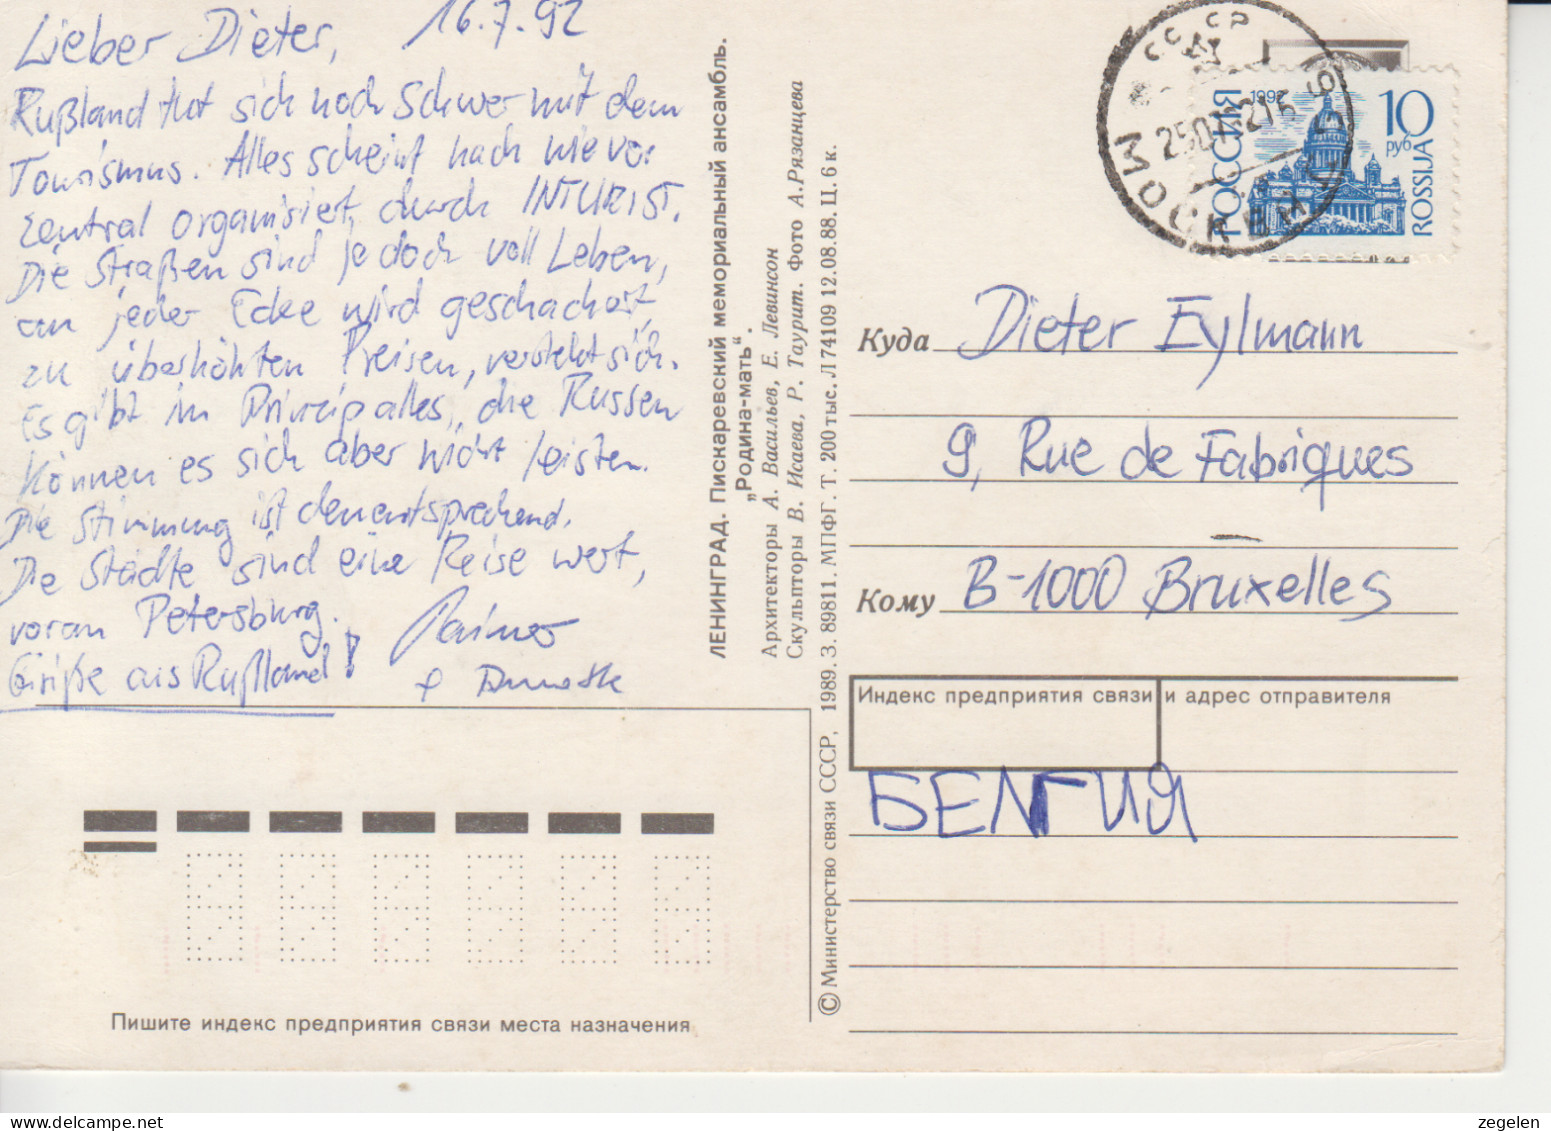 16.7.92
Lieber Dieter,
Rußland tut sich noch schwer mit dem
Tourismus. Alles scheint nach wie vor
zentral organisiert, durch INTURIST.
Die Straßen sind jedoch voll Leben,
an jeder Ecke wird geschachert,
zu überhöhten Preisen, versteht sich.
Es gibt im Prinzip alles, die Russen
können es sich aber nicht leisten.
Die Stimmung ist dementsprechend.
Die Städte sind eine Reise wert,
voran Petersburg.
Grüße aus Rußland!
Rainer
ЛЕНИНГРАД. Пискаревский мемориальный ансамбль.
„Родина-мать“.
Архитекторы А. Васильев, Е. Левинсон
Скульпторы В. Исаева, Р. Таурит. Фото А. Рязанцева
© Министерство связи СССР, 1989. З. 89811. МПФГ. Т. 200 тыс. Л 74109 12.08.88. Ц. 6 к.
СССР
МОСКВА
РОССИЯ
1992
10
руб
ROSSIJA
Куда Dieter Eylmann
9, Rue de Fabriques
Кому B-1000 Bruxelles
Индекс предприятия связи и адрес отправителя
БЕЛГИЯ
Пишите индекс предприятия связи места назначения
zegelen